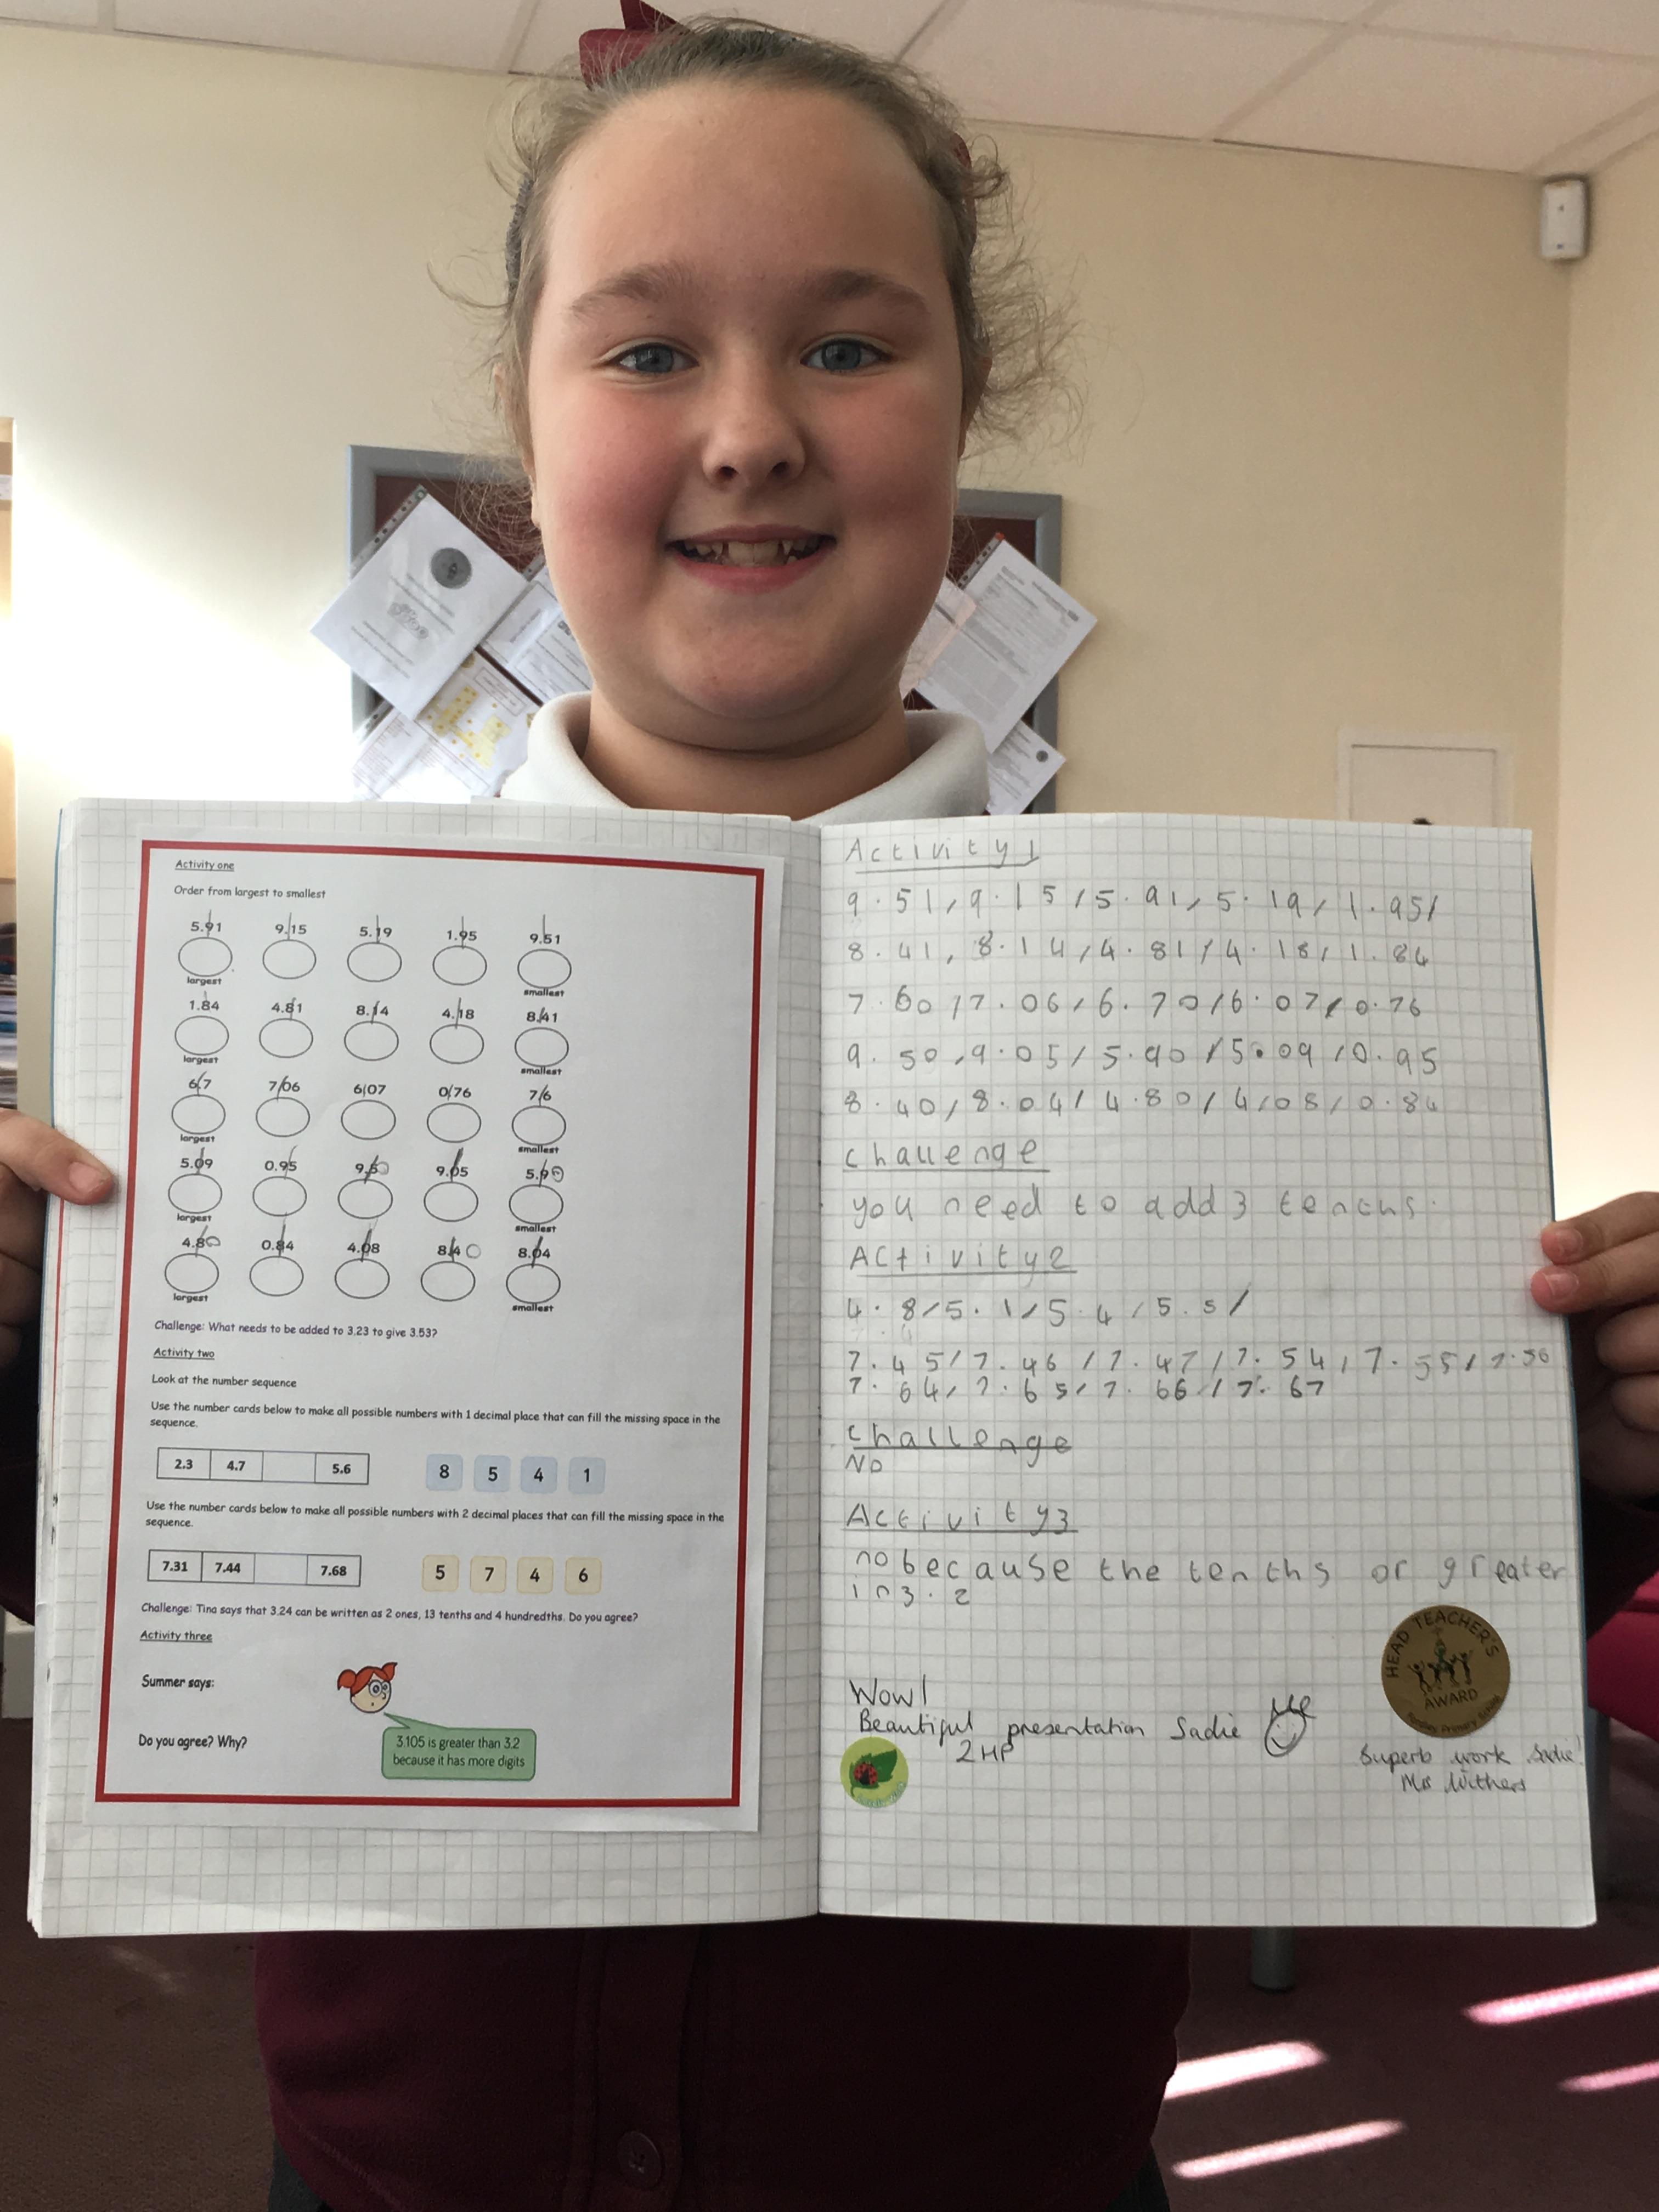 Activity one
Order from largest to smallest
5.91 9.15 5.19 1.95 9.51
largest smallest
1.84 4.81 8.14 4.18 8.41
largest smallest
6.7 7.06 6.07 0.76 7.6
largest smallest
5.09 0.95 9.50 9.05 5.90
largest smallest
4.80 0.84 4.08 8.40 8.04
largest smallest
Challenge: What needs to be added to 3.23 to give 3.53?
Activity two
Look at the number sequence
Use the number cards below to make all possible numbers with 1 decimal place that can fill the missing space in the
sequence.
2.3 4.7 5.6 8 5 4 1
Use the number cards below to make all possible numbers with 2 decimal places that can fill the missing space in the
sequence.
7.31 7.44 7.68 5 7 4 6
Challenge: Tina says that 3.24 can be written as 2 ones, 13 tenths and 4 hundredths. Do you agree?
Activity three
Summer says:
3.105 is greater than 3.2
because it has more digits
Do you agree? Why?
Activity 1
9.51, 9.15 / 5.91, 5.19 / 1.95 /
8.41, 8.14 / 4.81 / 4.18 / 1.84
7.60 / 7.06 / 6.70 / 6.07 / 0.76
9.50, 9.05 / 5.90 / 5.09 / 0.95
8.40 / 8.04 / 4.80 / 4/08 / 0.84
Challenge
you need to add 3 tenths.
Activity 2
4.8 / 5.1 / 5.4 / 5.5 /
7.45 / 7.46 / 7.47 / 7.54 / 7.55 / 7.56
7.64 / 7.65 / 7.66 / 7.67
Challenge
No
Activity 3
no because the tenths or greater
in 3.2
Wow!
Beautiful presentation Sadie
2HP
HEAD TEACHER'S
AWARD
Primary School
Superb work Sadie!
Mrs Withers